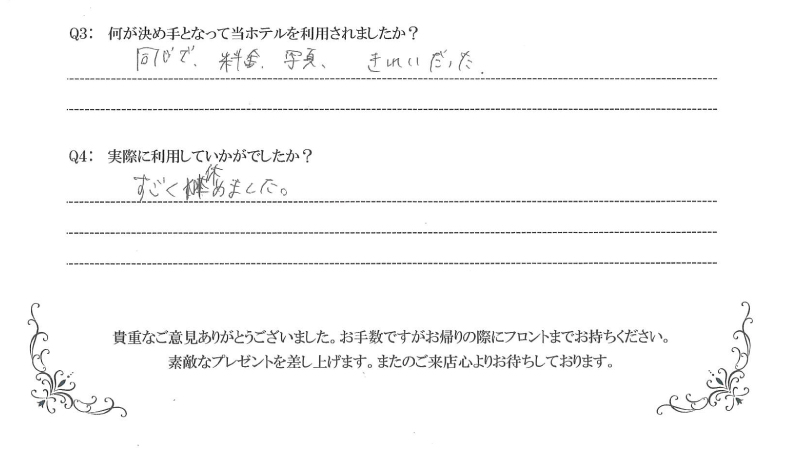 Q3： 何が決め手となって当ホテルを利用されましたか？
料金、写真、 きれいだった.
Q4： 実際に利用していかがでしたか？
すごく休めました。
貴重なご意見ありがとうございました。お手数ですがお帰りの際にフロントまでお持ちください。
素敵なプレゼントを差し上げます。またのご来店心よりお待ちしております。